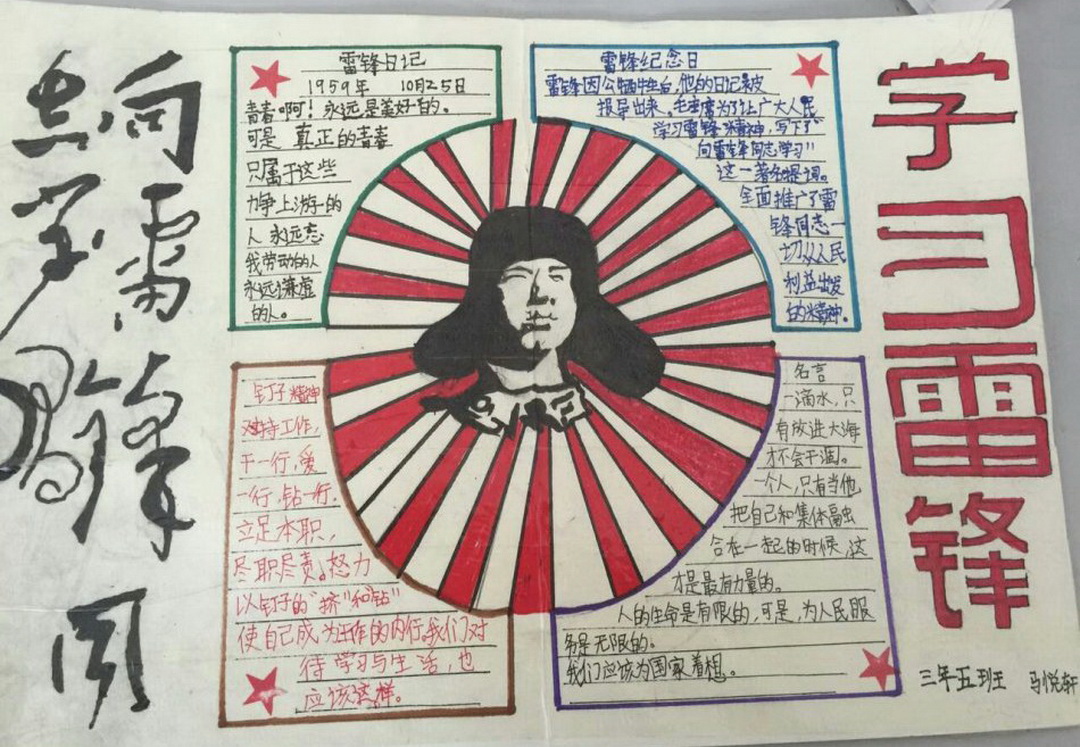 向雷锋同
志学习
雷锋日记
1959年 10月25日
青春啊！永远是美好的。
可是 真正的青春
只属于这些
力争上游的
人 永远忘
我劳动的人
永远谦虚
的人。
雷锋纪念日
雷锋因公牺牲后，他的日记被
报导出来。毛主席为了让广大人民
学习雷锋"精神，写下了"
向雷锋同志学习"
这一著名提词。
全面推广了雷
锋同志一
切从人民
利益出发
的精神。
钉子精神
对待工作，
干一行，爱
一行，钻一行.
立足本职，
尽职尽责。努力
以钉子的"挤"和"钻"
使自己成为工作的内行。我们对
待学习与生活，也
应该这样。
名言
一滴水，只
有放进大海
才不会干涸。
一个人，只有当他
把自己和集体融
合在一起的时候，这
才是最有力量的。
人的生命是有限的，可是，为人民服
务是无限的。
我们应该为国家着想。
学习雷锋
三年五班 马悦轩